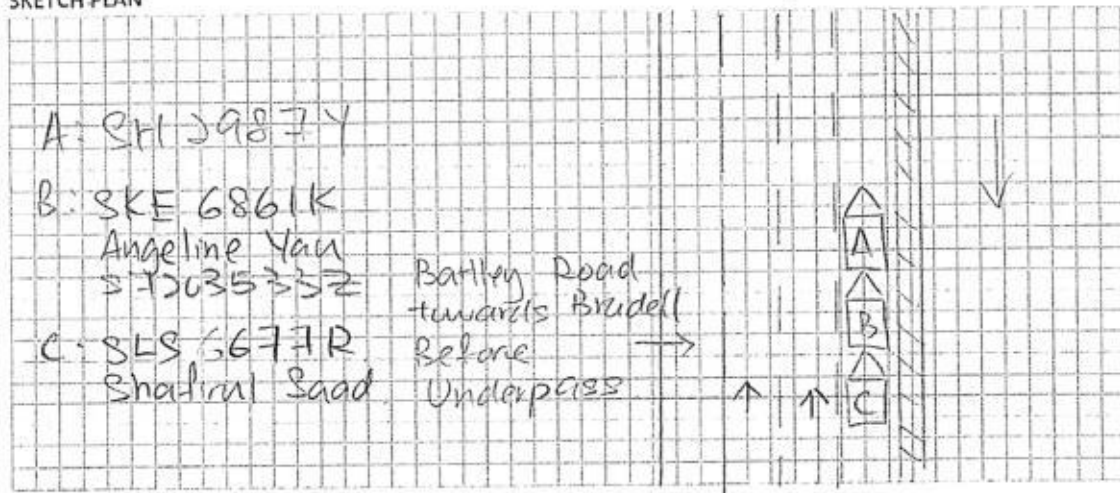 SKETCH PLAN
A: SHJ 987Y
B: SKE 6861K
Angeline Yau
C: SLS 6677R
Shafirul Saad
Batlley Road
towards Bradell
Before
Underpass
A
B
C